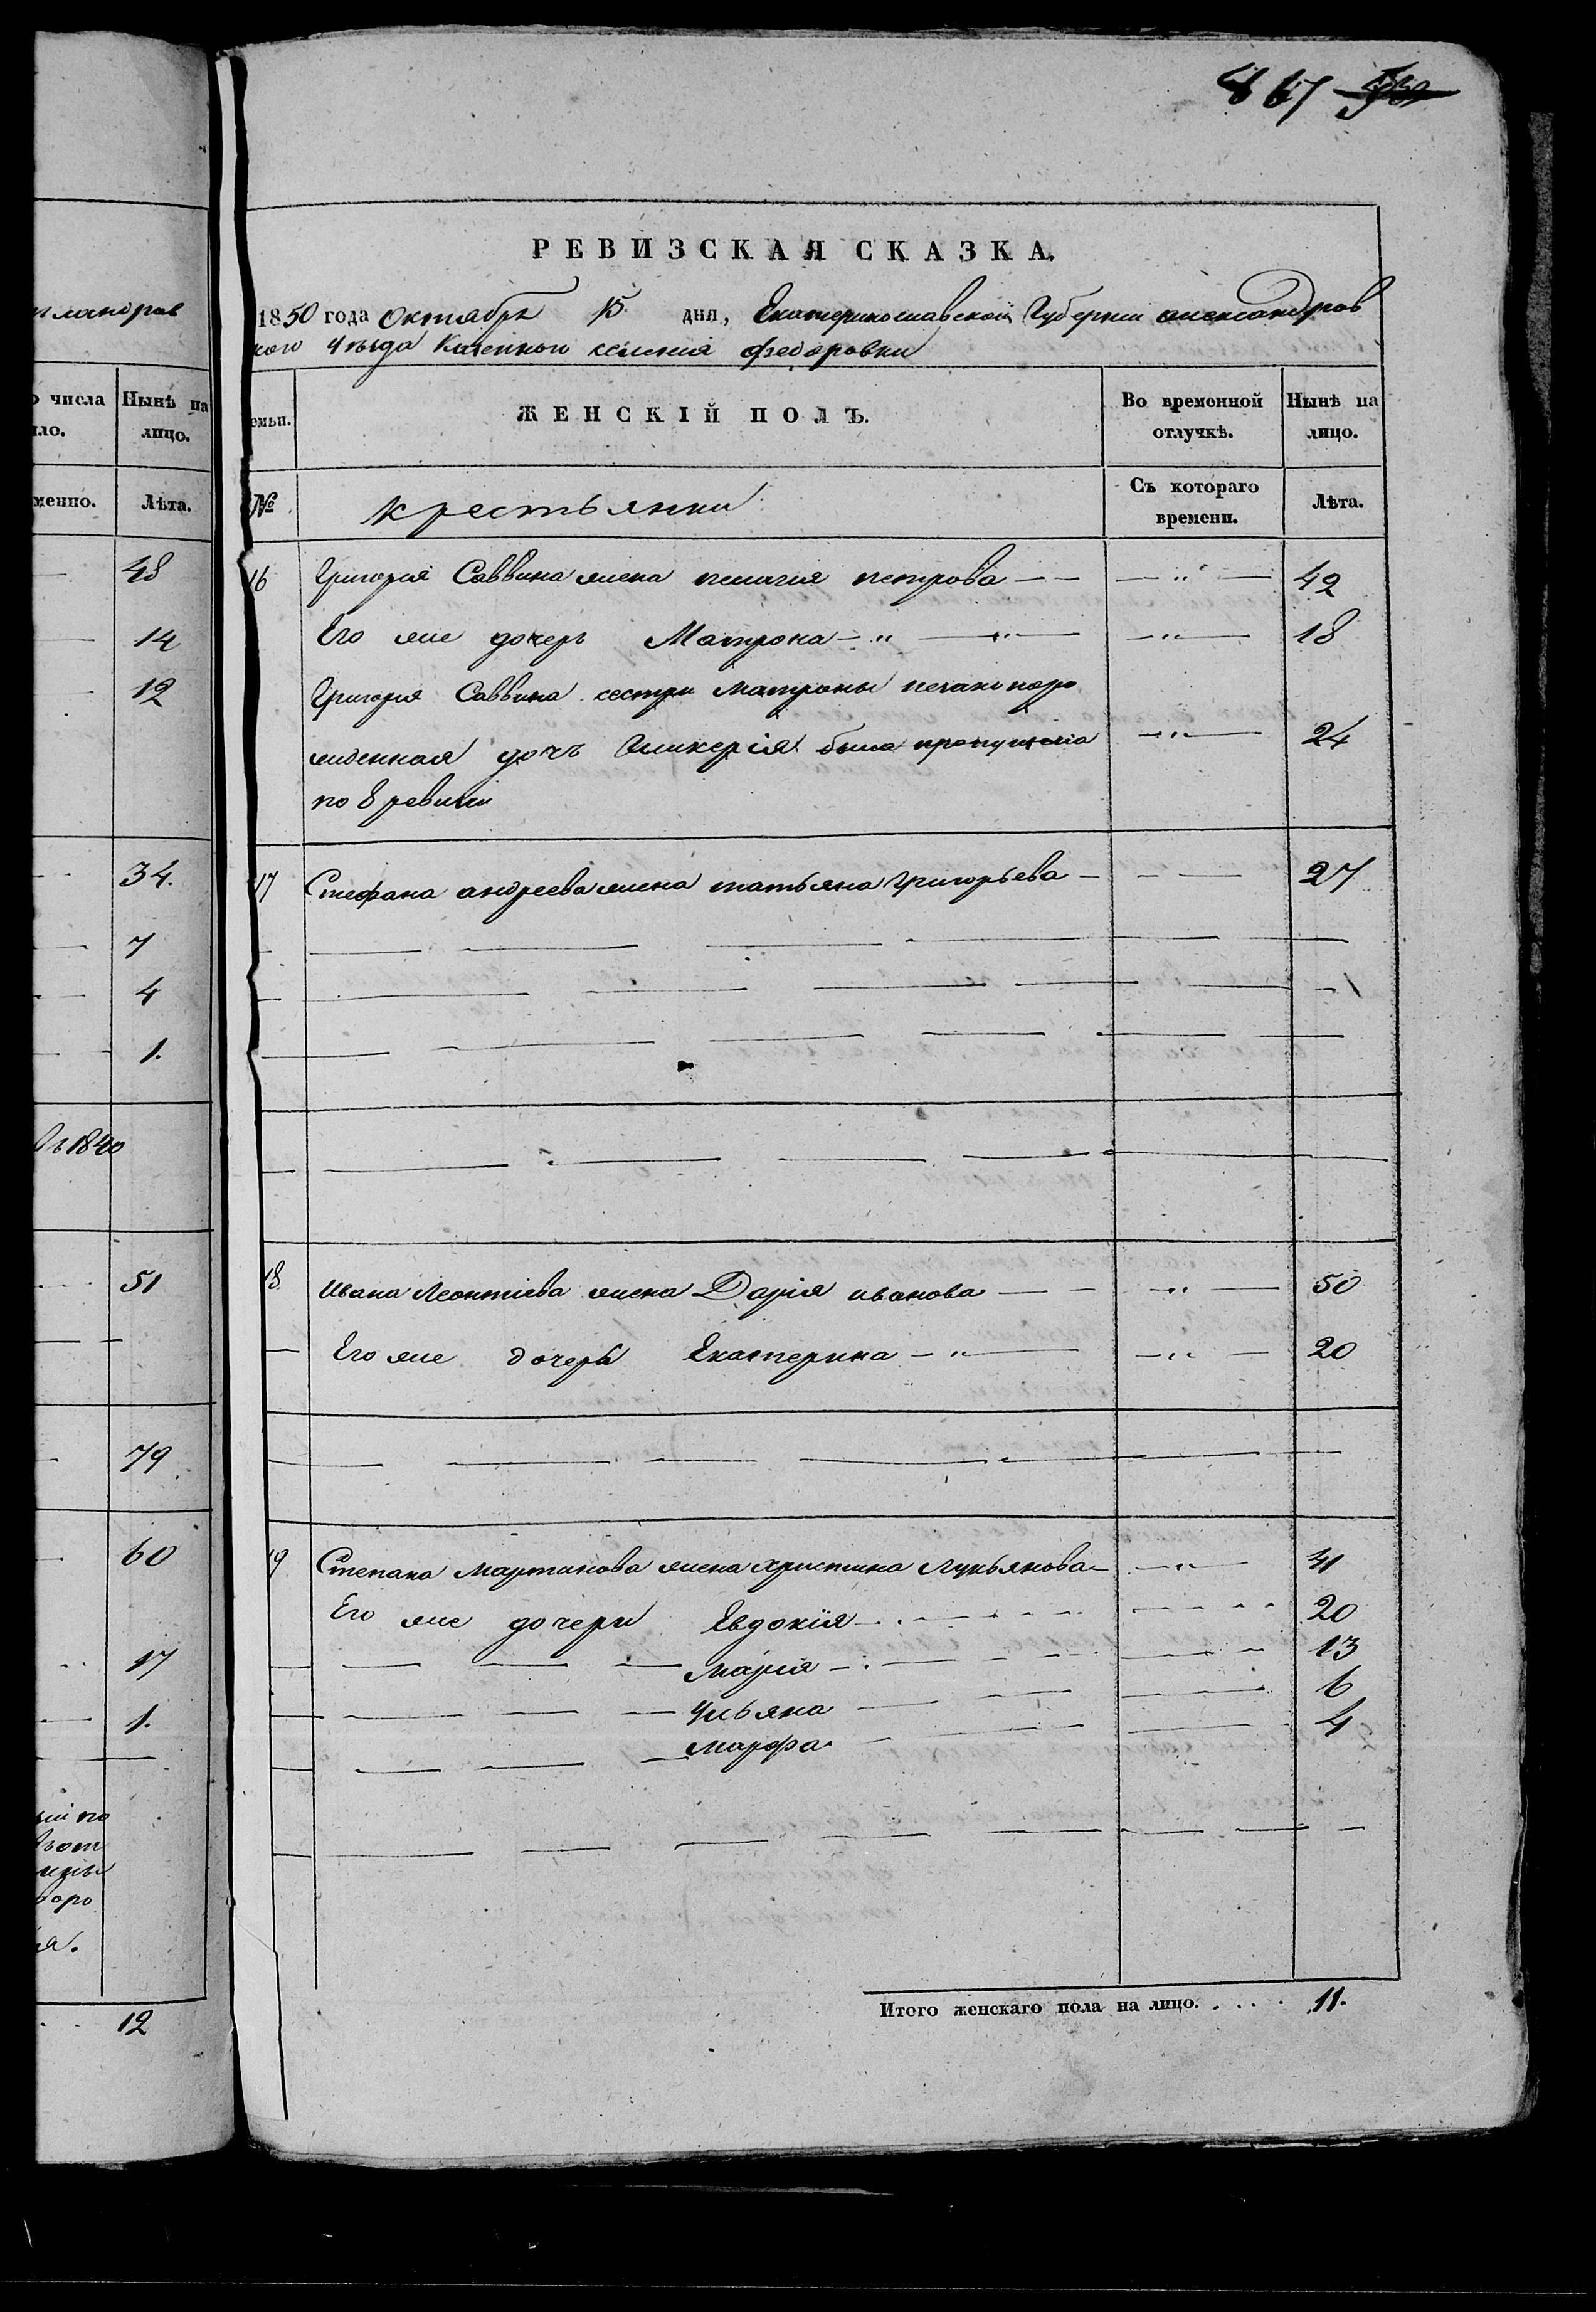 867
РЕВИЗСКАЯ СКАЗКА.
1850 года Октября 15 дня, Екатеринославской Губернии александров
кого уѣзда Казенного селения Федоровки
емьи. ЖЕНСКІЙ ПОЛЪ. Во временной отлучкѣ. Нынѣ на лицо.
№ крестьянки Съ котораго времени. Лѣта.
16 Григорія Саввина жена пелагия петрова — — — " — 42
Его же дочерь Матрона — " — " — — " — 18
Григория Саввина сестры матроны незаконоро
жденная дочь Гликерія была пропущена — " — 24
по 8 ревизии
17 Стефана андреева жена татьяна Григорьева — — — 27
18 Ивана Леонтіева жена Дарія иванова — — — " — 50
Его же дочерь Екатерина — " — — " — 20
19 Степана Мартинова жена христина Лукьянова — — " — 41
Его же дочери Евдокія 20
Мария 13
Ульяна 6
Марфа 4
Итого женскаго пола на лицо. . . . . 11.
о числа
ло.
Нынѣ на
лицо.
менно.
Лѣта.
48
14
12
34.
7
4
1.
1840
51
79
60
17
1.
12